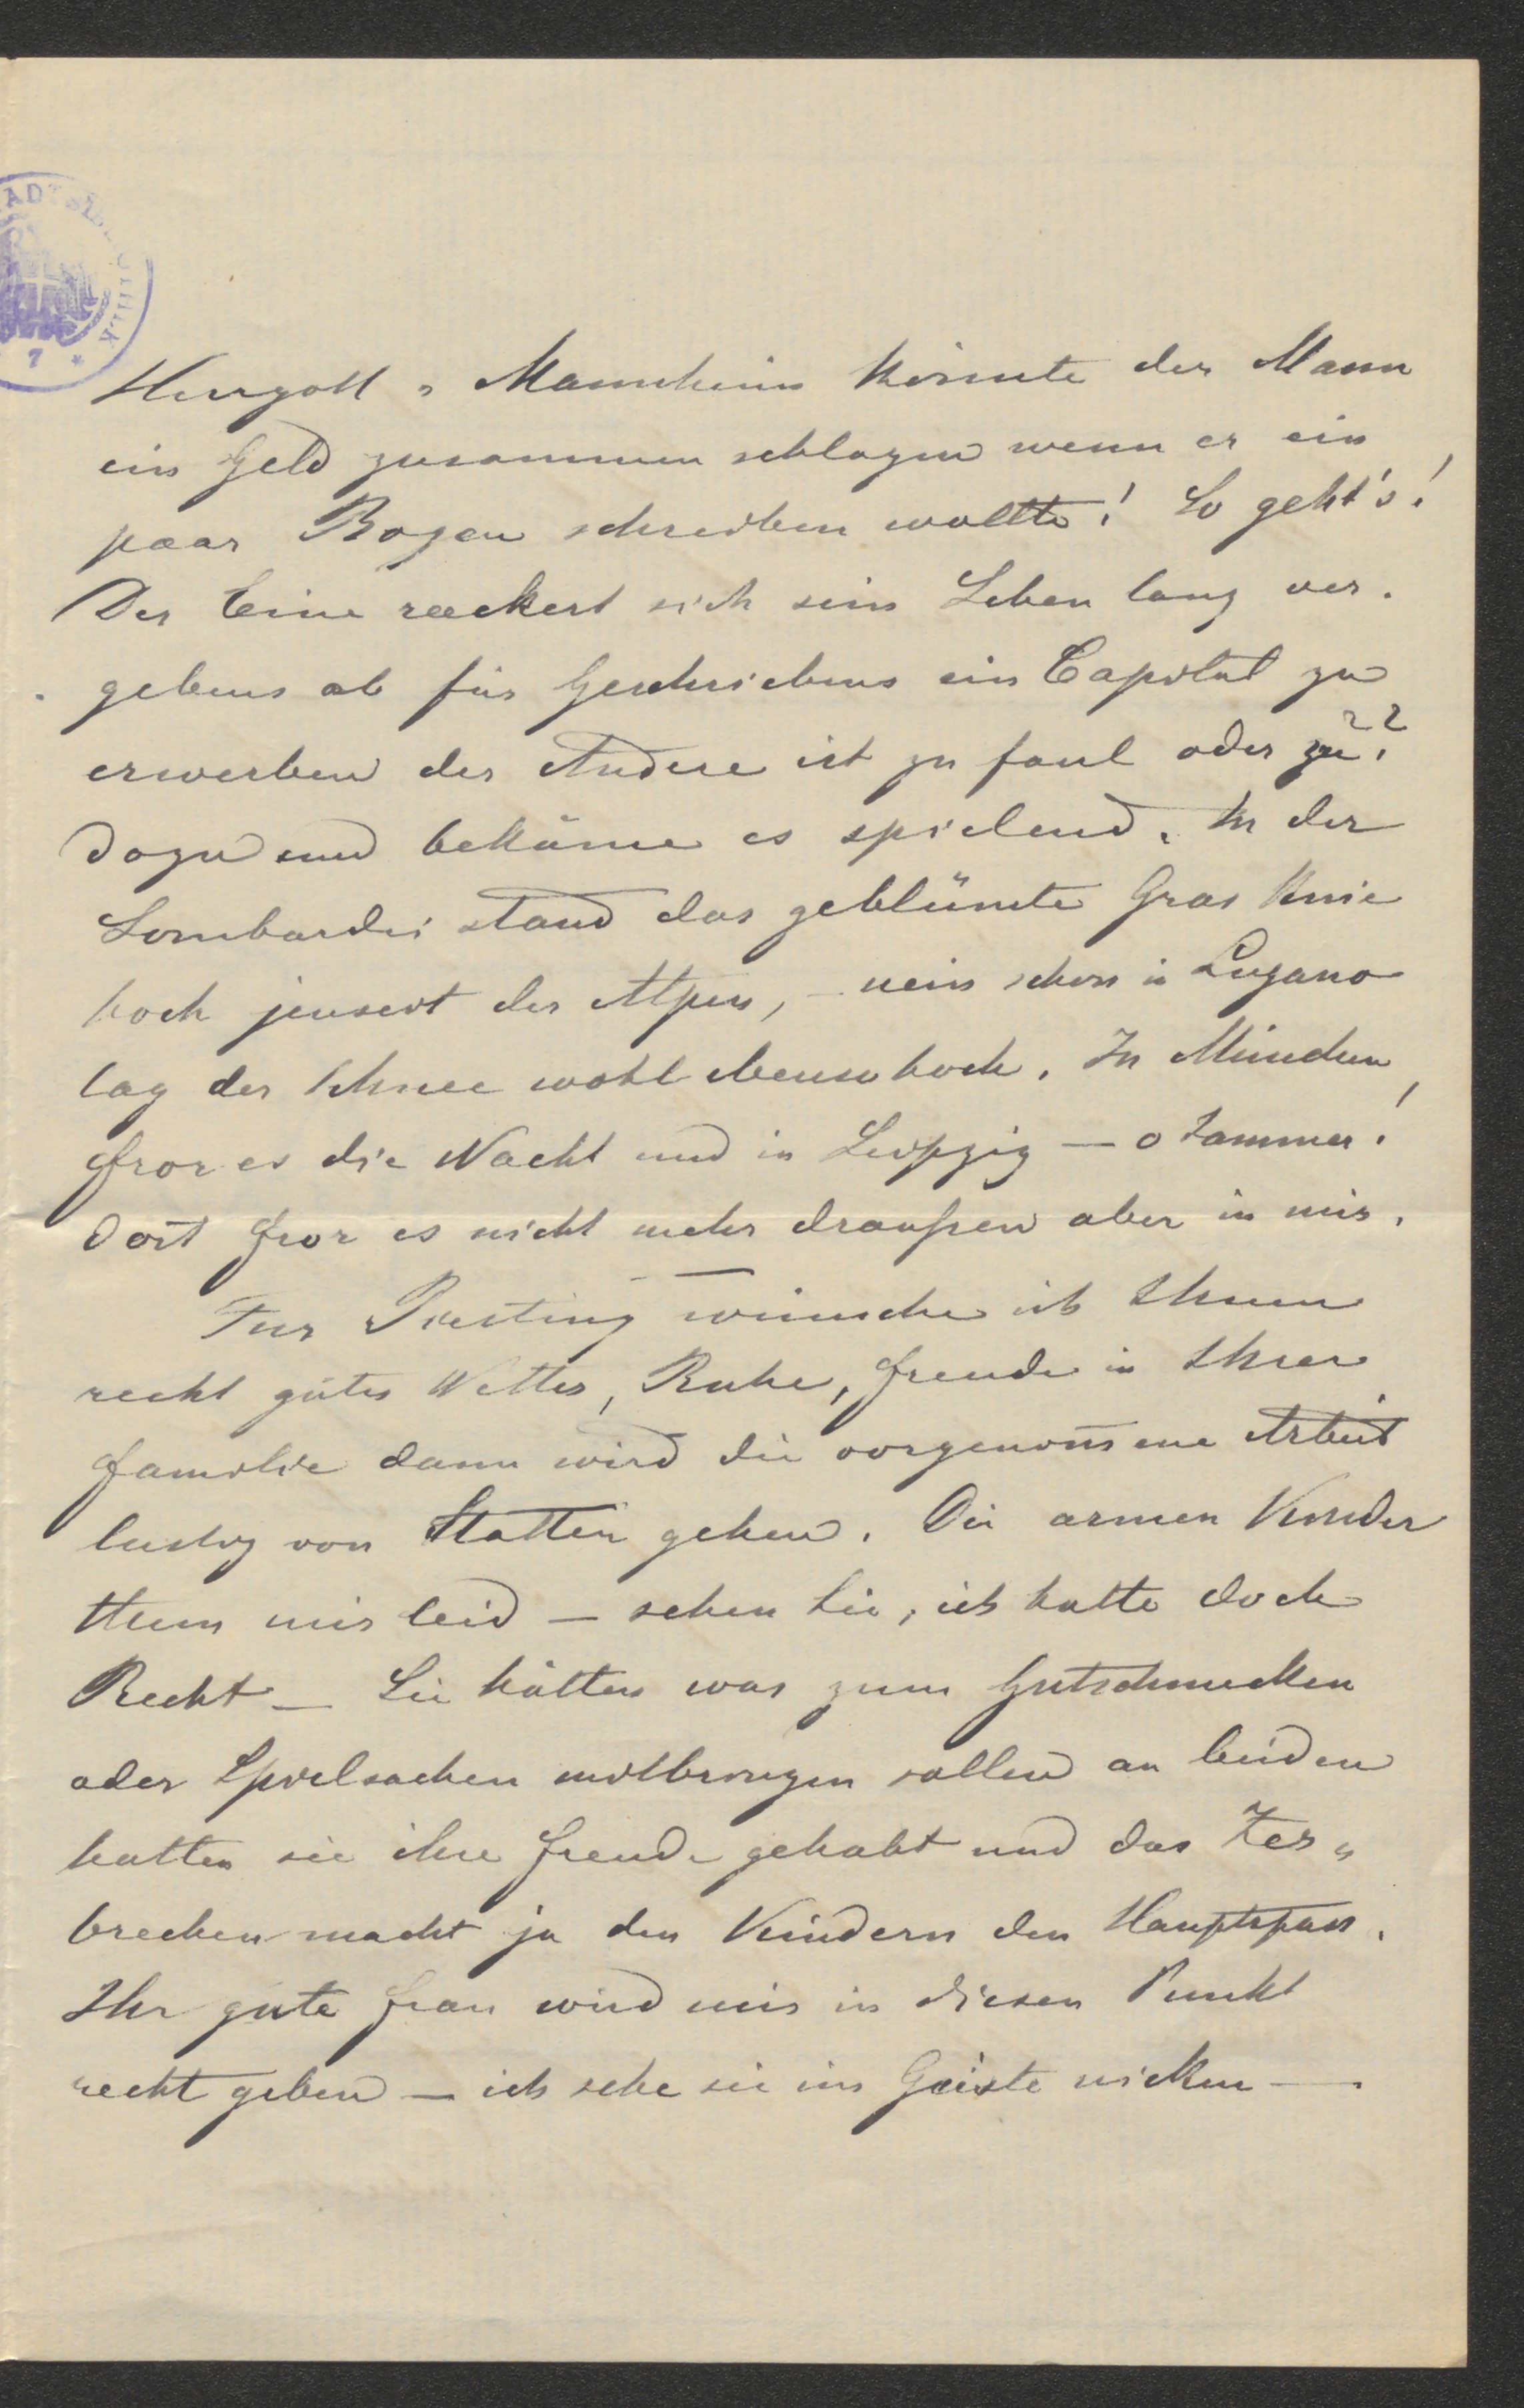 Herrgott, Mannheim könnte der Mann
ein Geld zusammen schlagen wenn er ein
paar Bogen schreiben wollte! So geht's!
Der Eine rackert sich sein Leben lang ver-
gebens ab für Geschriebens ein Capital zu
erwerben der Andere ist zu faul oder zu??
dazu und bekäme es spielend. In der
Lombardei stand das geblümte Gras Knie
hoch jenseit der Alpen, – nein schon in Lugano
lag der Schnee wohl ebenso hoch. In München
fror es die Nacht und in Leipzig – o Jammer!
dort fror es nicht mehr draußen aber in mir.
Fur Piesting wünsche ich Ihnen
recht gutes Wetter, Ruhe, Freude in Ihrer
Familie dann wird die vorgenom̄ene Arbeit
lustig von Statten gehen. Die armen Kinder
thun mir leid – sehen Sie, ich hatte doch
Recht – Sie hätten was zum Gutschmecken
oder Spielsachen mitbringen sollen an beiden
hatten sie ihre Freude gehabt und das Zer-
brechen macht ja den Kindern den Hauptspass.
Ihr gute Frau wird mir in diesen Punkt
recht geben – ich sehe sie im Geiste nicken –.
ADTBIBLIOTHEK
7 *